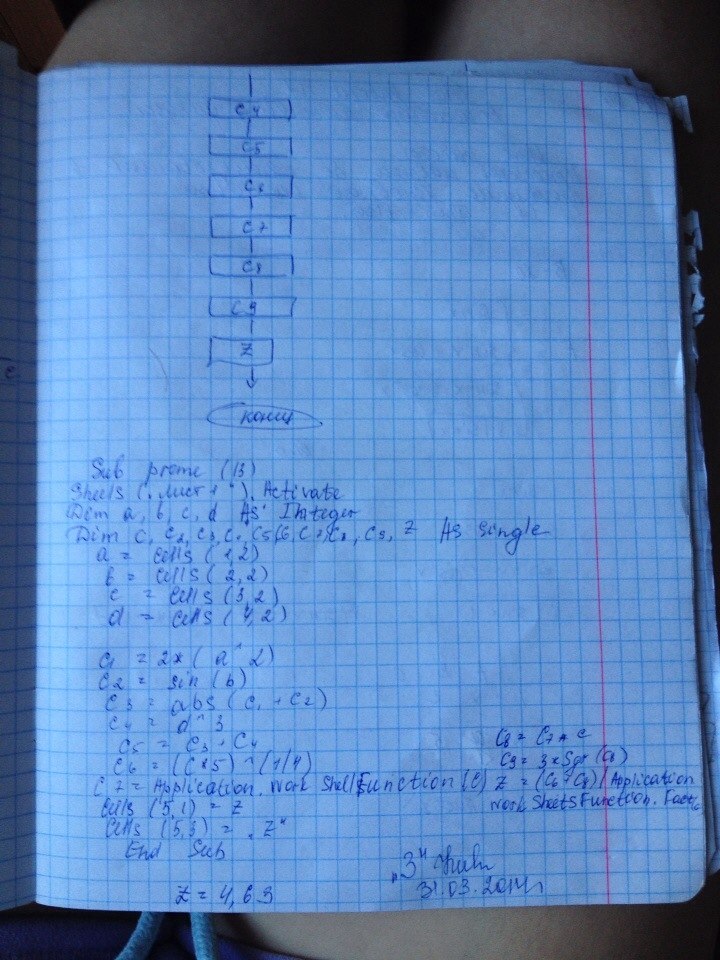 C4
C5
C6
C7
C8
C9
Z
конец
Sub prome (13)
Sheets („Лист 1"). Activate
Dim a, b, c, d As Integer
Dim C, C2, C3, C4, C5, C6, C7, C8, C9, Z As Single
a = Cells (1,2)
b = Cells (2,2)
c = Cells (3,2)
d = Cells (4,2)
C1 = 2*(a^2)
C2 = sin (b)
C3 = abs (C1 + C2)
C4 = d^3
C5 = C3 + C4
C6 = (C*5)^(1/4)
C7 = Application. Work Sheet Function (c)
C8 = C7 * c
C9 = 3*Sqr (C8)
Z = (C6 + C8) / Application
Work Sheets Function. Fact
Cells (5,1) = Z
Cells (5,3) = „Z"
End Sub
Z = 4,63
„3"
31.03.2014